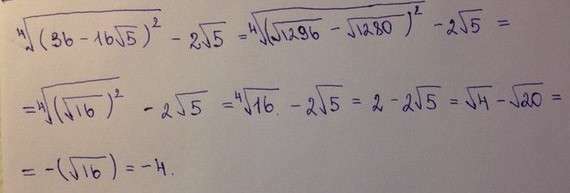 ⁴√((36 - 16√5)²) - 2√5 = ⁴√((√1296 - √1280)²) - 2√5 =
= ⁴√((√16)²) - 2√5 = ⁴√16 - 2√5 = 2 - 2√5 = √4 - √20 =
= -(√16) = -4.